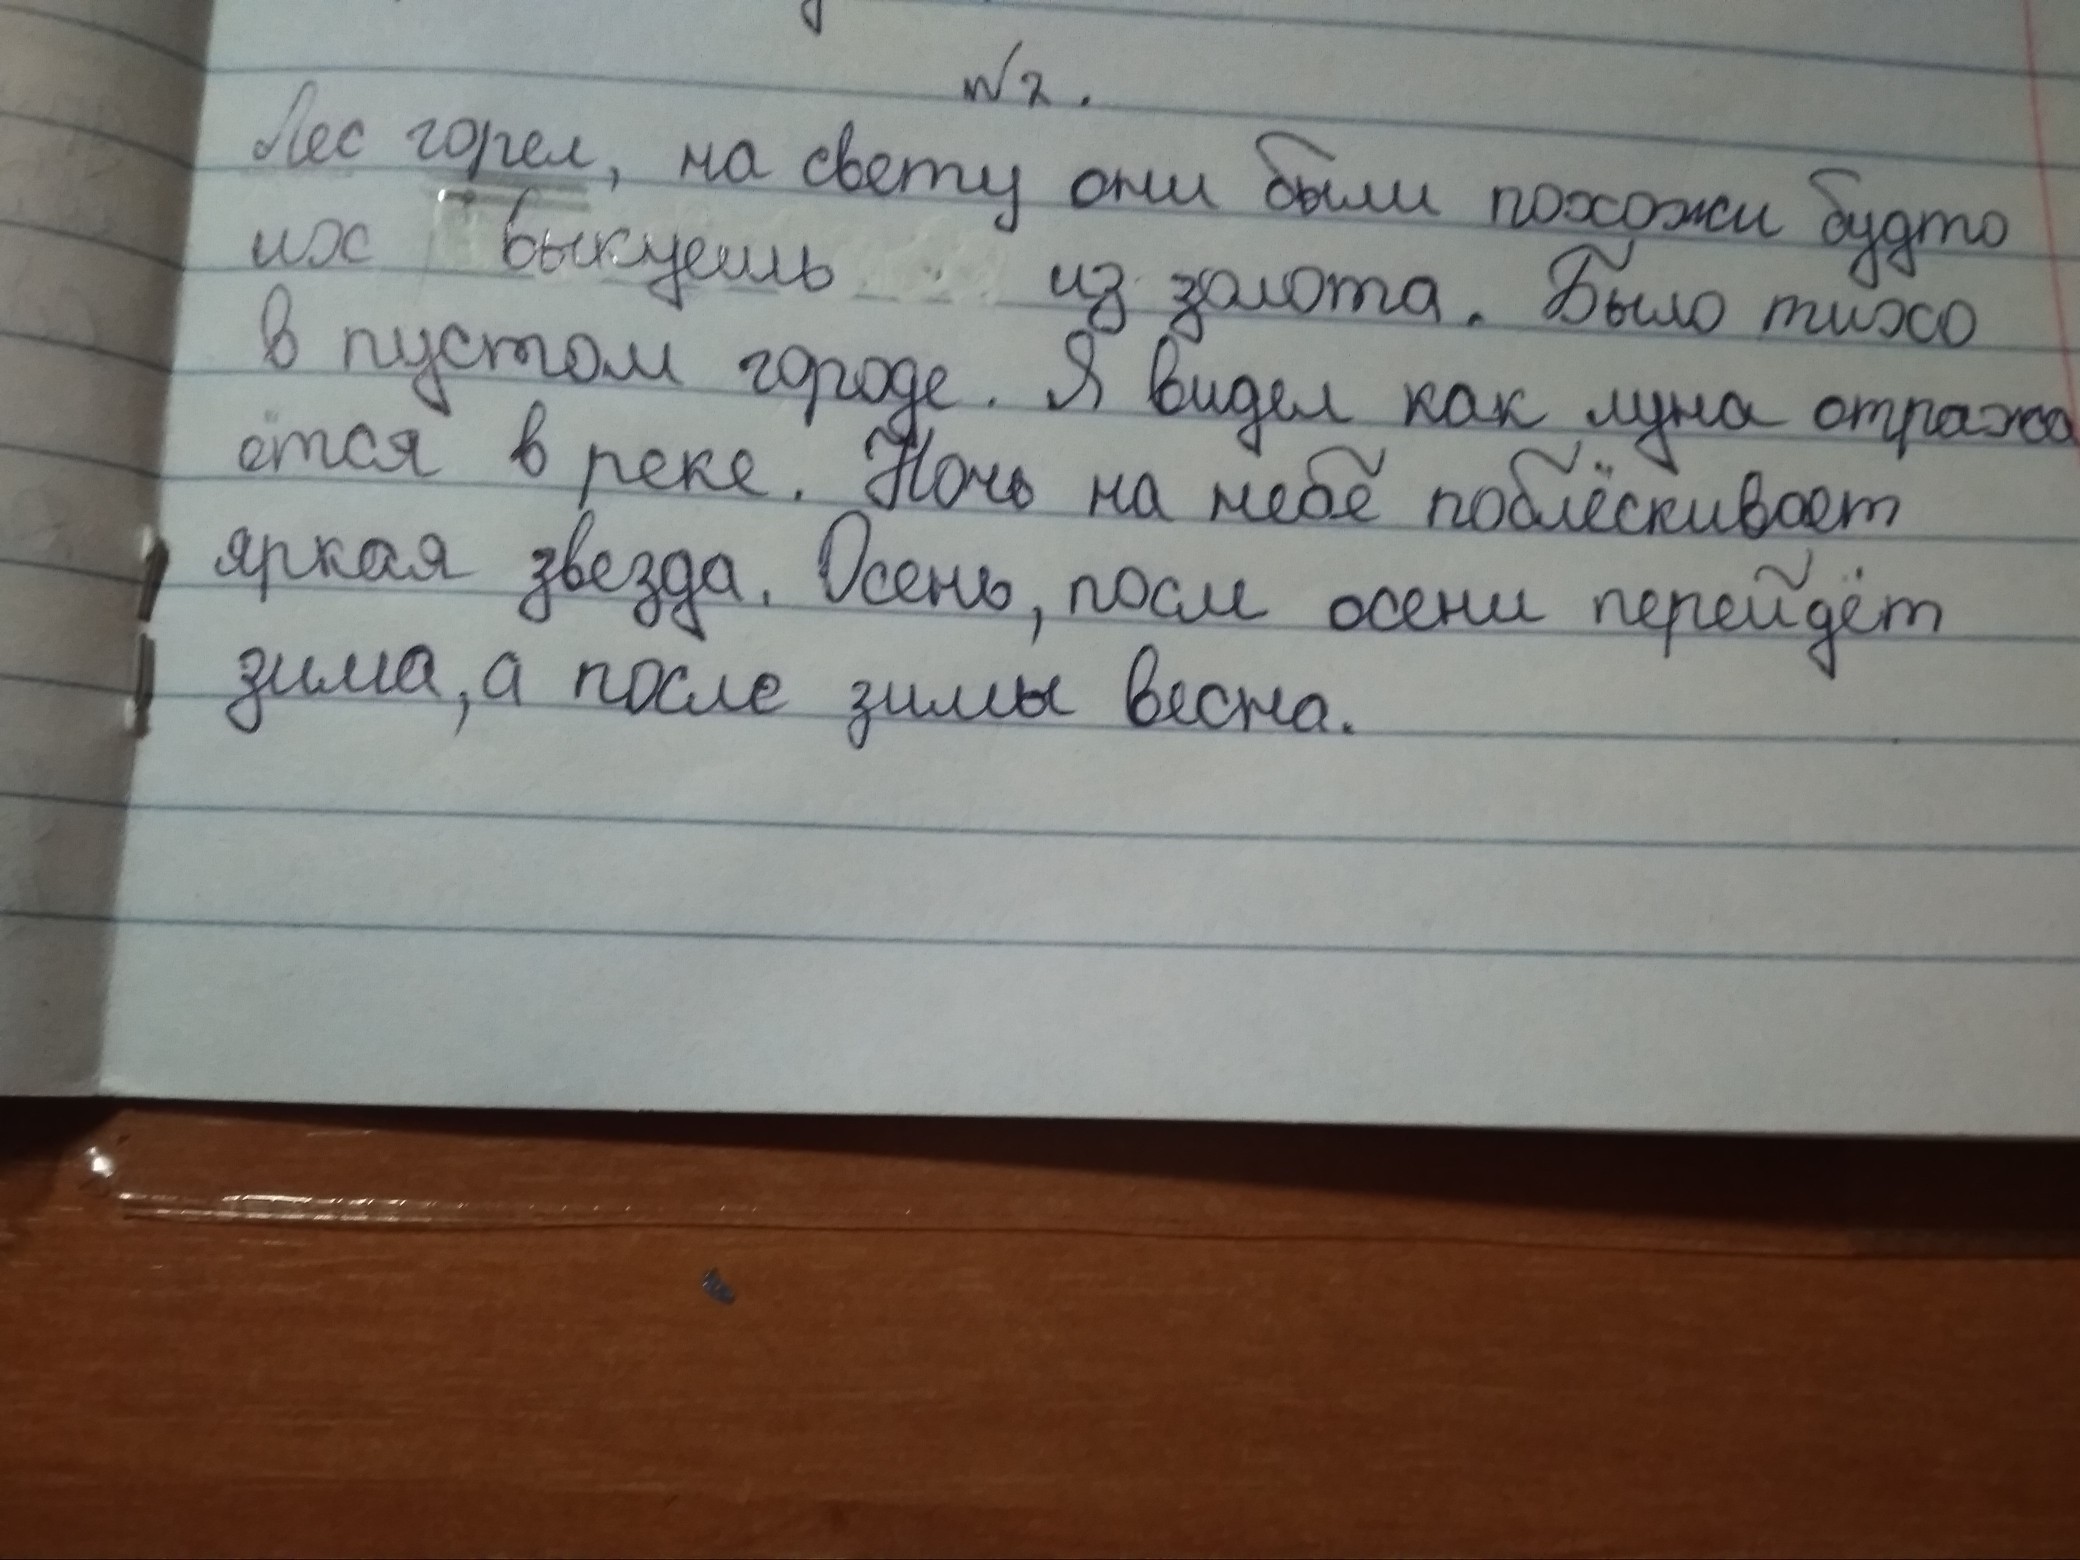 №2.
Лес горел, на свету они были похожи будто
их выкуешь из золота. Было тихо
в пустом городе. Я видел как луна отража
ётся в реке. Ночь на небе поблёскивает
яркая звезда. Осень, посли осени перейдёт
зима, а после зимы весна.